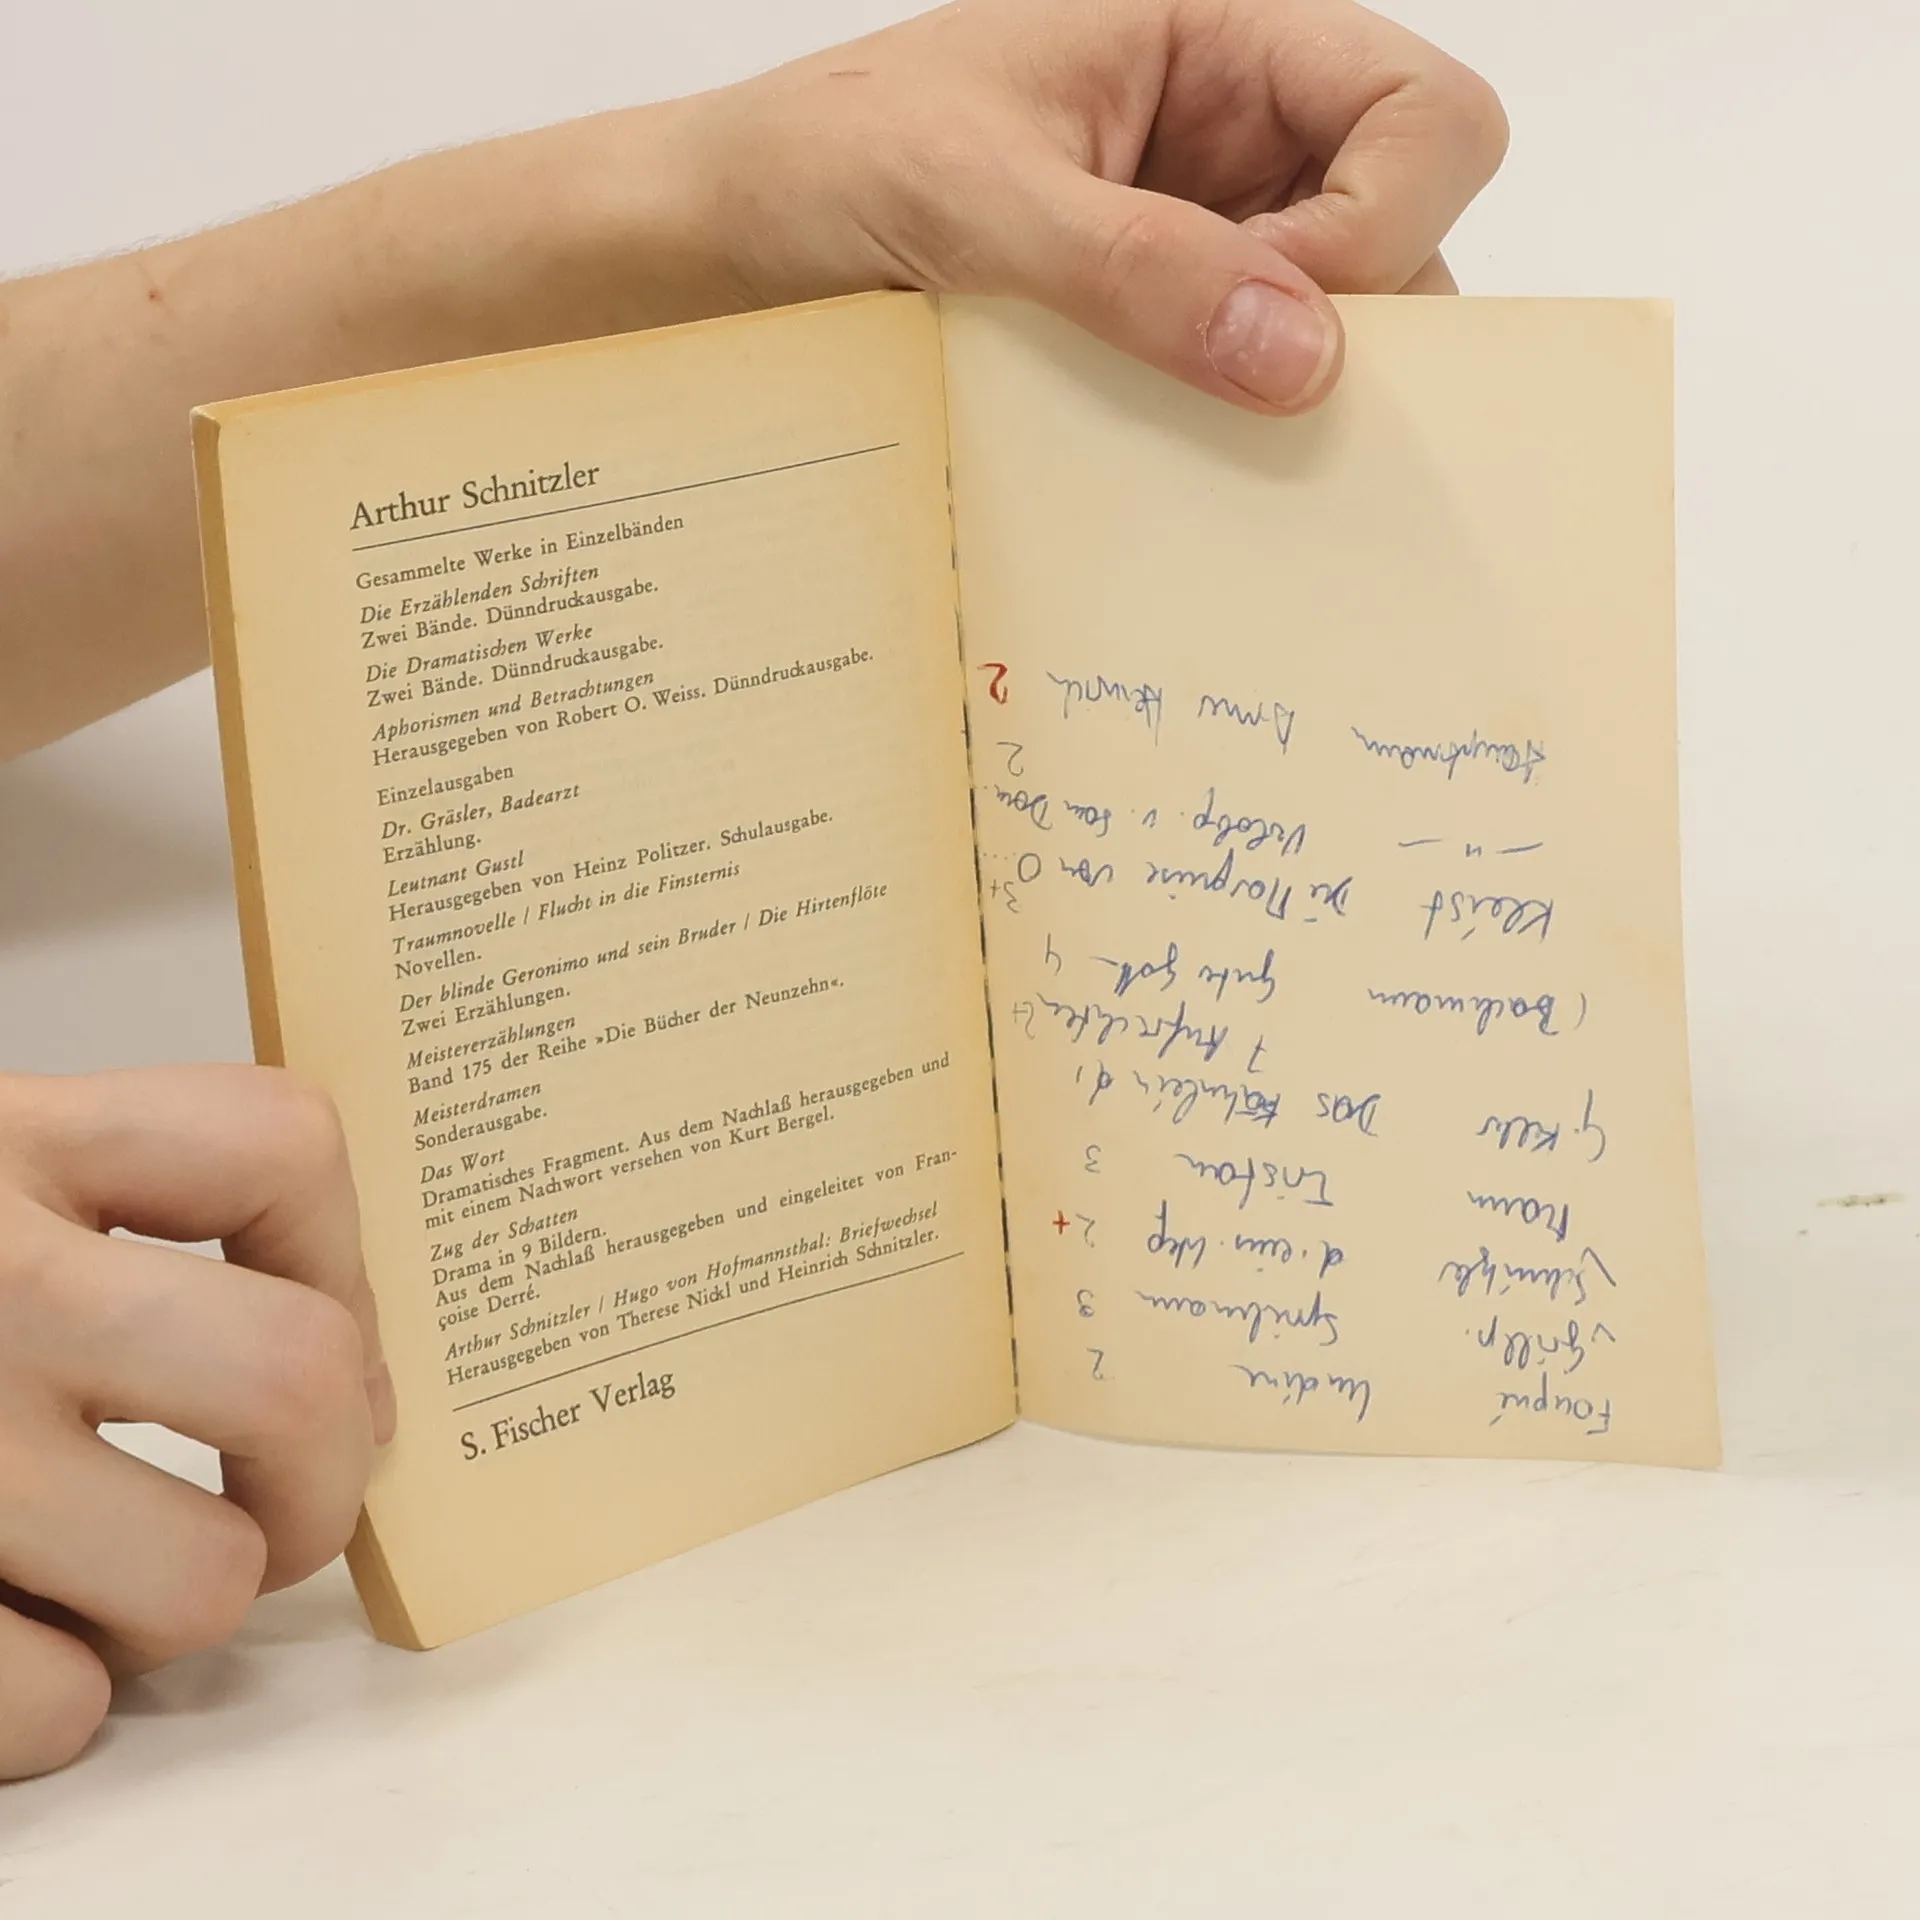 Arthur Schnitzler
Gesammelte Werke in Einzelbänden
Die Erzählenden Schriften
Zwei Bände. Dünndruckausgabe.
Die Dramatischen Werke
Zwei Bände. Dünndruckausgabe.
Aphorismen und Betrachtungen
Herausgegeben von Robert O. Weiss. Dünndruckausgabe.
Einzelausgaben
Dr. Gräsler, Badearzt
Erzählung.
Leutnant Gustl
Herausgegeben von Heinz Politzer. Schulausgabe.
Traumnovelle / Flucht in die Finsternis
Novellen.
Der blinde Geronimo und sein Bruder / Die Hirtenflöte
Zwei Erzählungen.
Meistererzählungen
Band 175 der Reihe »Die Bücher der Neunzehn«.
Meisterdramen
Sonderausgabe.
Das Wort
Dramatisches Fragment. Aus dem Nachlaß herausgegeben und
mit einem Nachwort versehen von Kurt Bergel.
Zug der Schatten
Drama in 9 Bildern.
Aus dem Nachlaß herausgegeben und eingeleitet von Fran-
çoise Derré.
Arthur Schnitzler / Hugo von Hofmannsthal: Briefwechsel
Herausgegeben von Therese Nickl und Heinrich Schnitzler.
S. Fischer Verlag
Fouqué Undine 2
v. Grillp. Spielmann 3
Schnitzler 2+
Mann Tristan 3
G. Keller Das Fähnlein d.
7 Aufrechten 2+
(Bachmann Gute Gott 4
Kleist Die Marquise von O... 3+
— " — Verlobg. v. San Dom. 2
Hauptmann Arme Heinrich 2